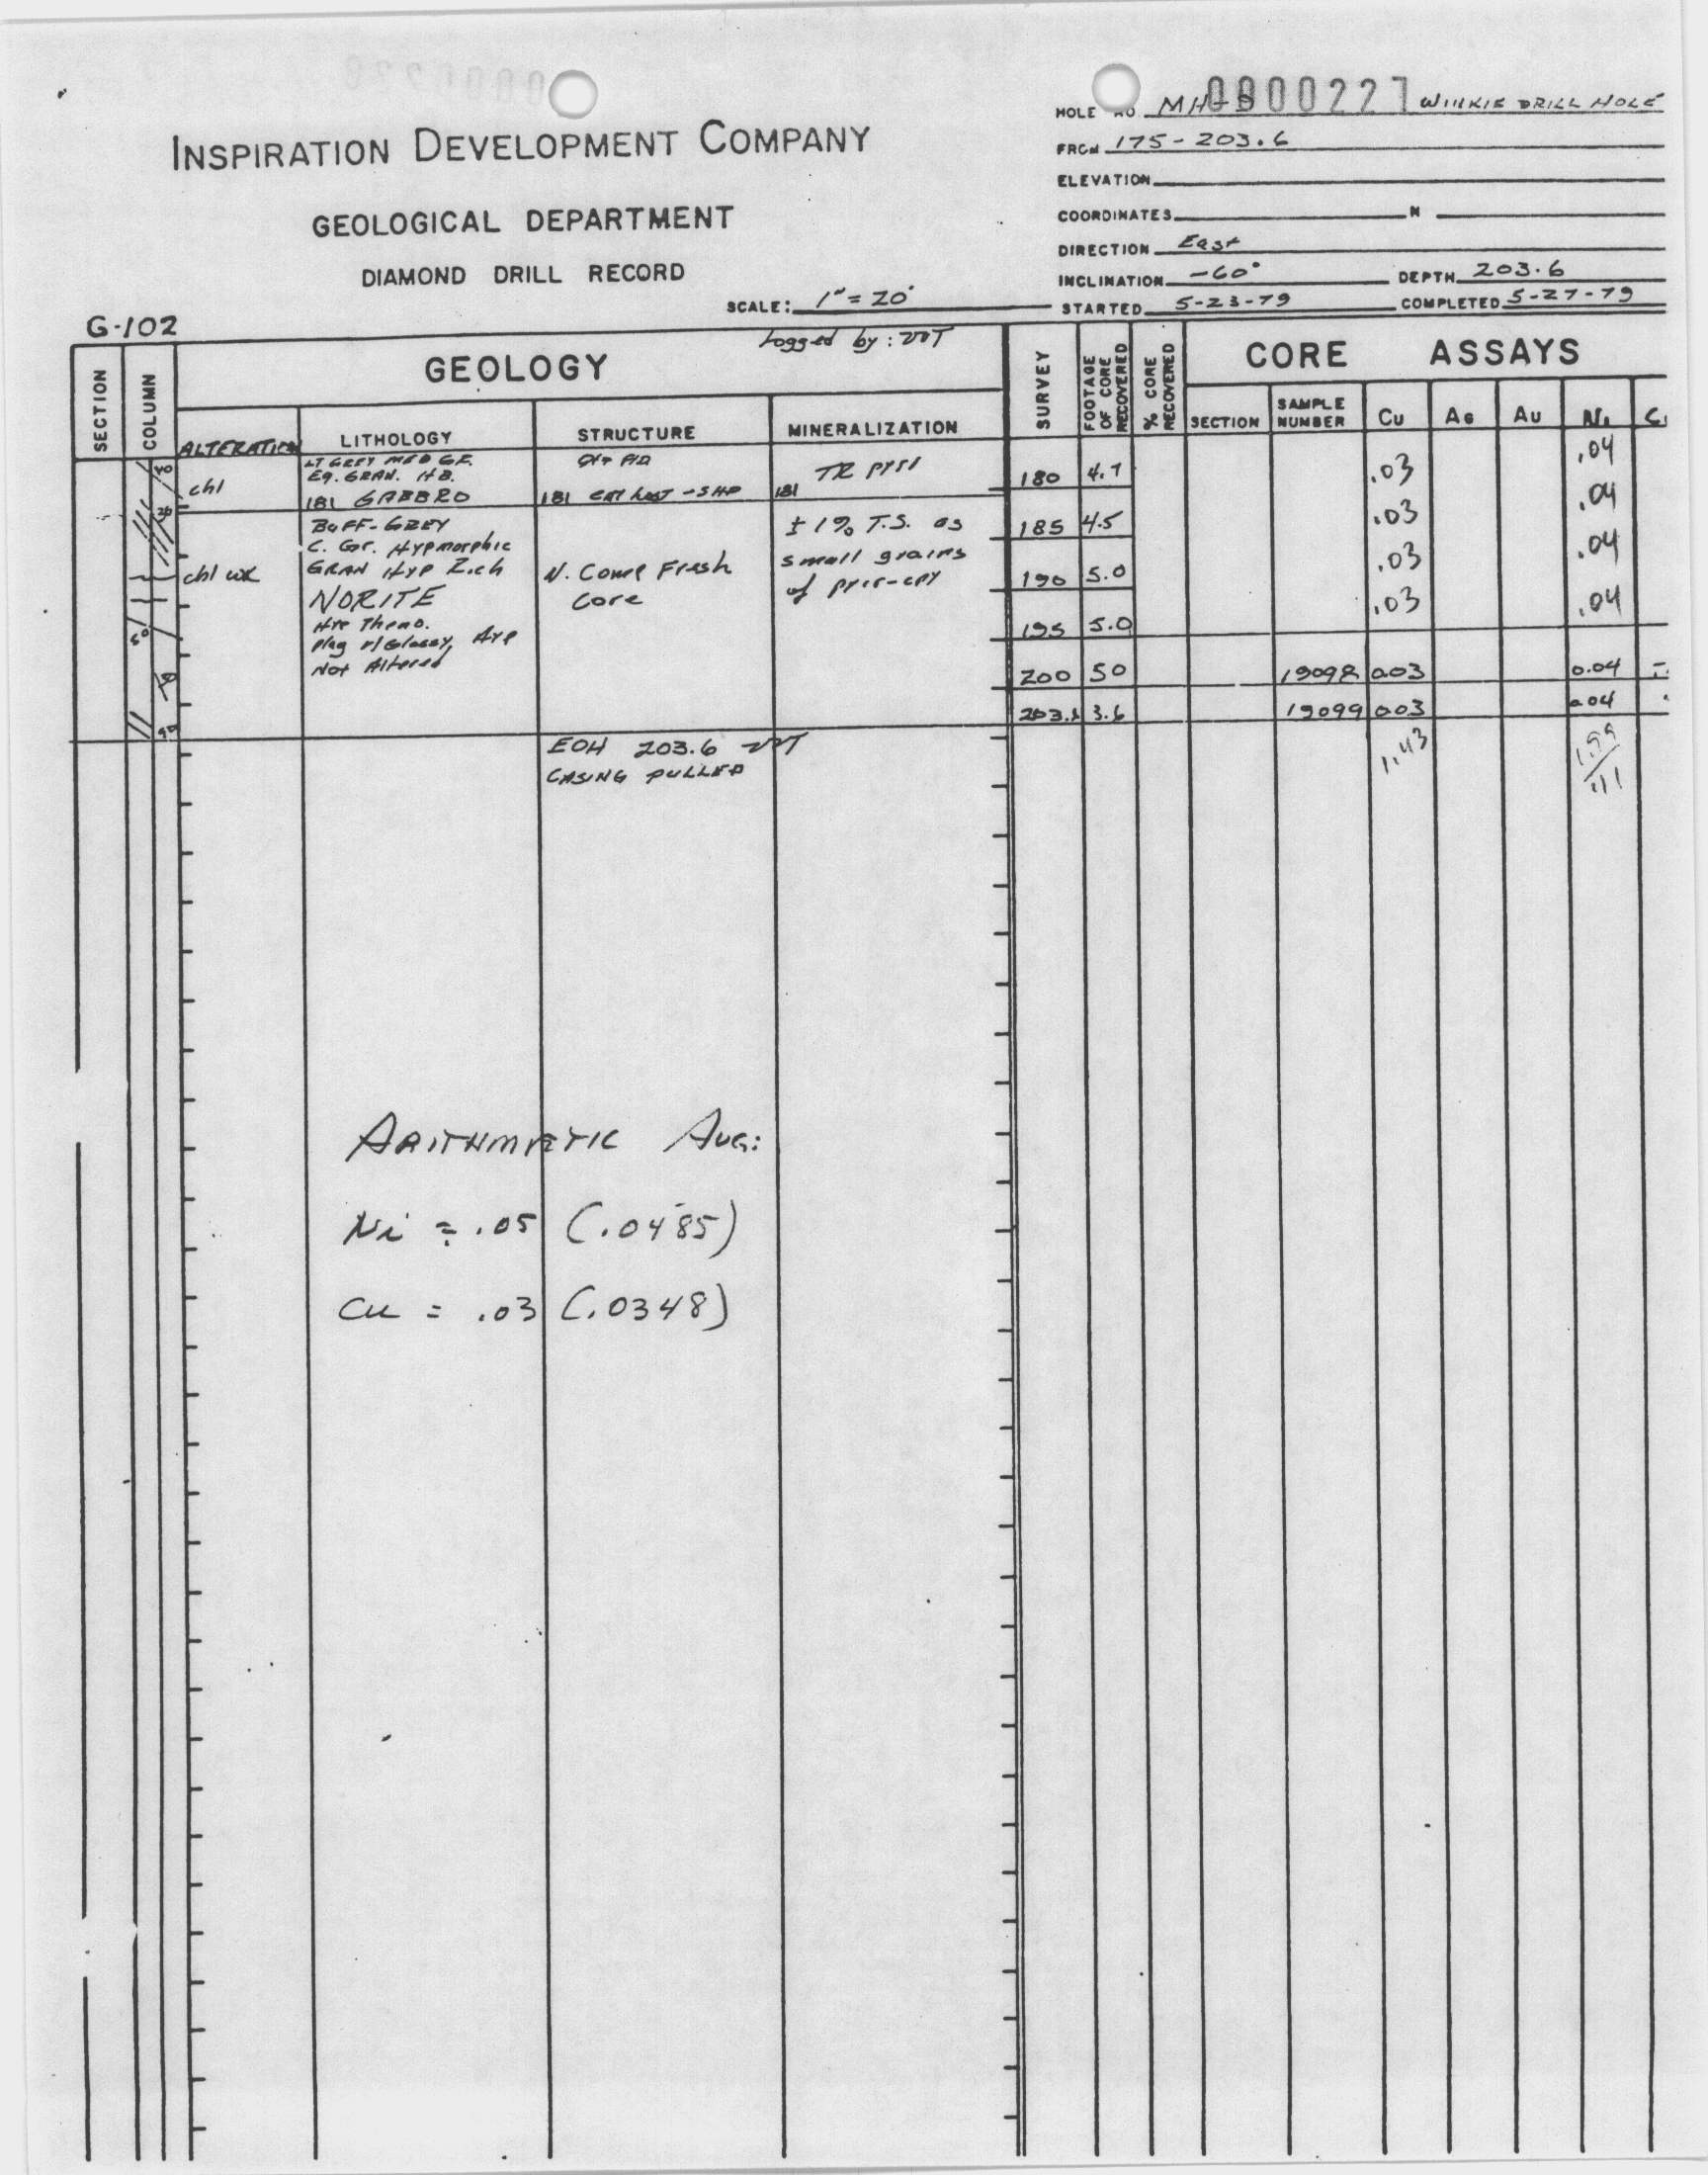 0000227
HOLE NO. MH- WINKIE DRILL HOLE
INSPIRATION DEVELOPMENT COMPANY
FROM 175-203.6
ELEVATION
GEOLOGICAL DEPARTMENT
COORDINATES N
DIRECTION East
DIAMOND DRILL RECORD
INCLINATION -60° DEPTH 203.6
SCALE: 1"=20' STARTED 5-23-79 COMPLETED 5-27-79
G-102
Logged by:
SECTION COLUMN GEOLOGY SURVEY FOOTAGE OF CORE RECOVERED % CORE RECOVERED CORE ASSAYS
ALTERATION LITHOLOGY STRUCTURE MINERALIZATION SECTION SAMPLE NUMBER Cu AG AU Ni
LT GREY MED GR. TR pyrr 180 4.7 .03 .04
EQ. GRAN. HB.
chl 181 GABBRO 181 181
BUFF-GREY ± 1% T.S. as 185 4.5 .03 .04
C. Gr. Hypmorphic small grains
chl wk GRAN Hyp Rich N. Comp Fresh of pyrr-cpy 190 5.0 .03 .04
NORITE Core
195 5.0 .03 .04
Plag Glassy, Hyp
Not Altered 200 50 19098 0.03 0.04
203.6 3.6 19099 0.03 0.04
EOH 203.6
CASING PULLED
1.43
1.99
.11
ARITHMETIC AVG:
Ni = .05 (.0485)
Cu = .03 (.0348)